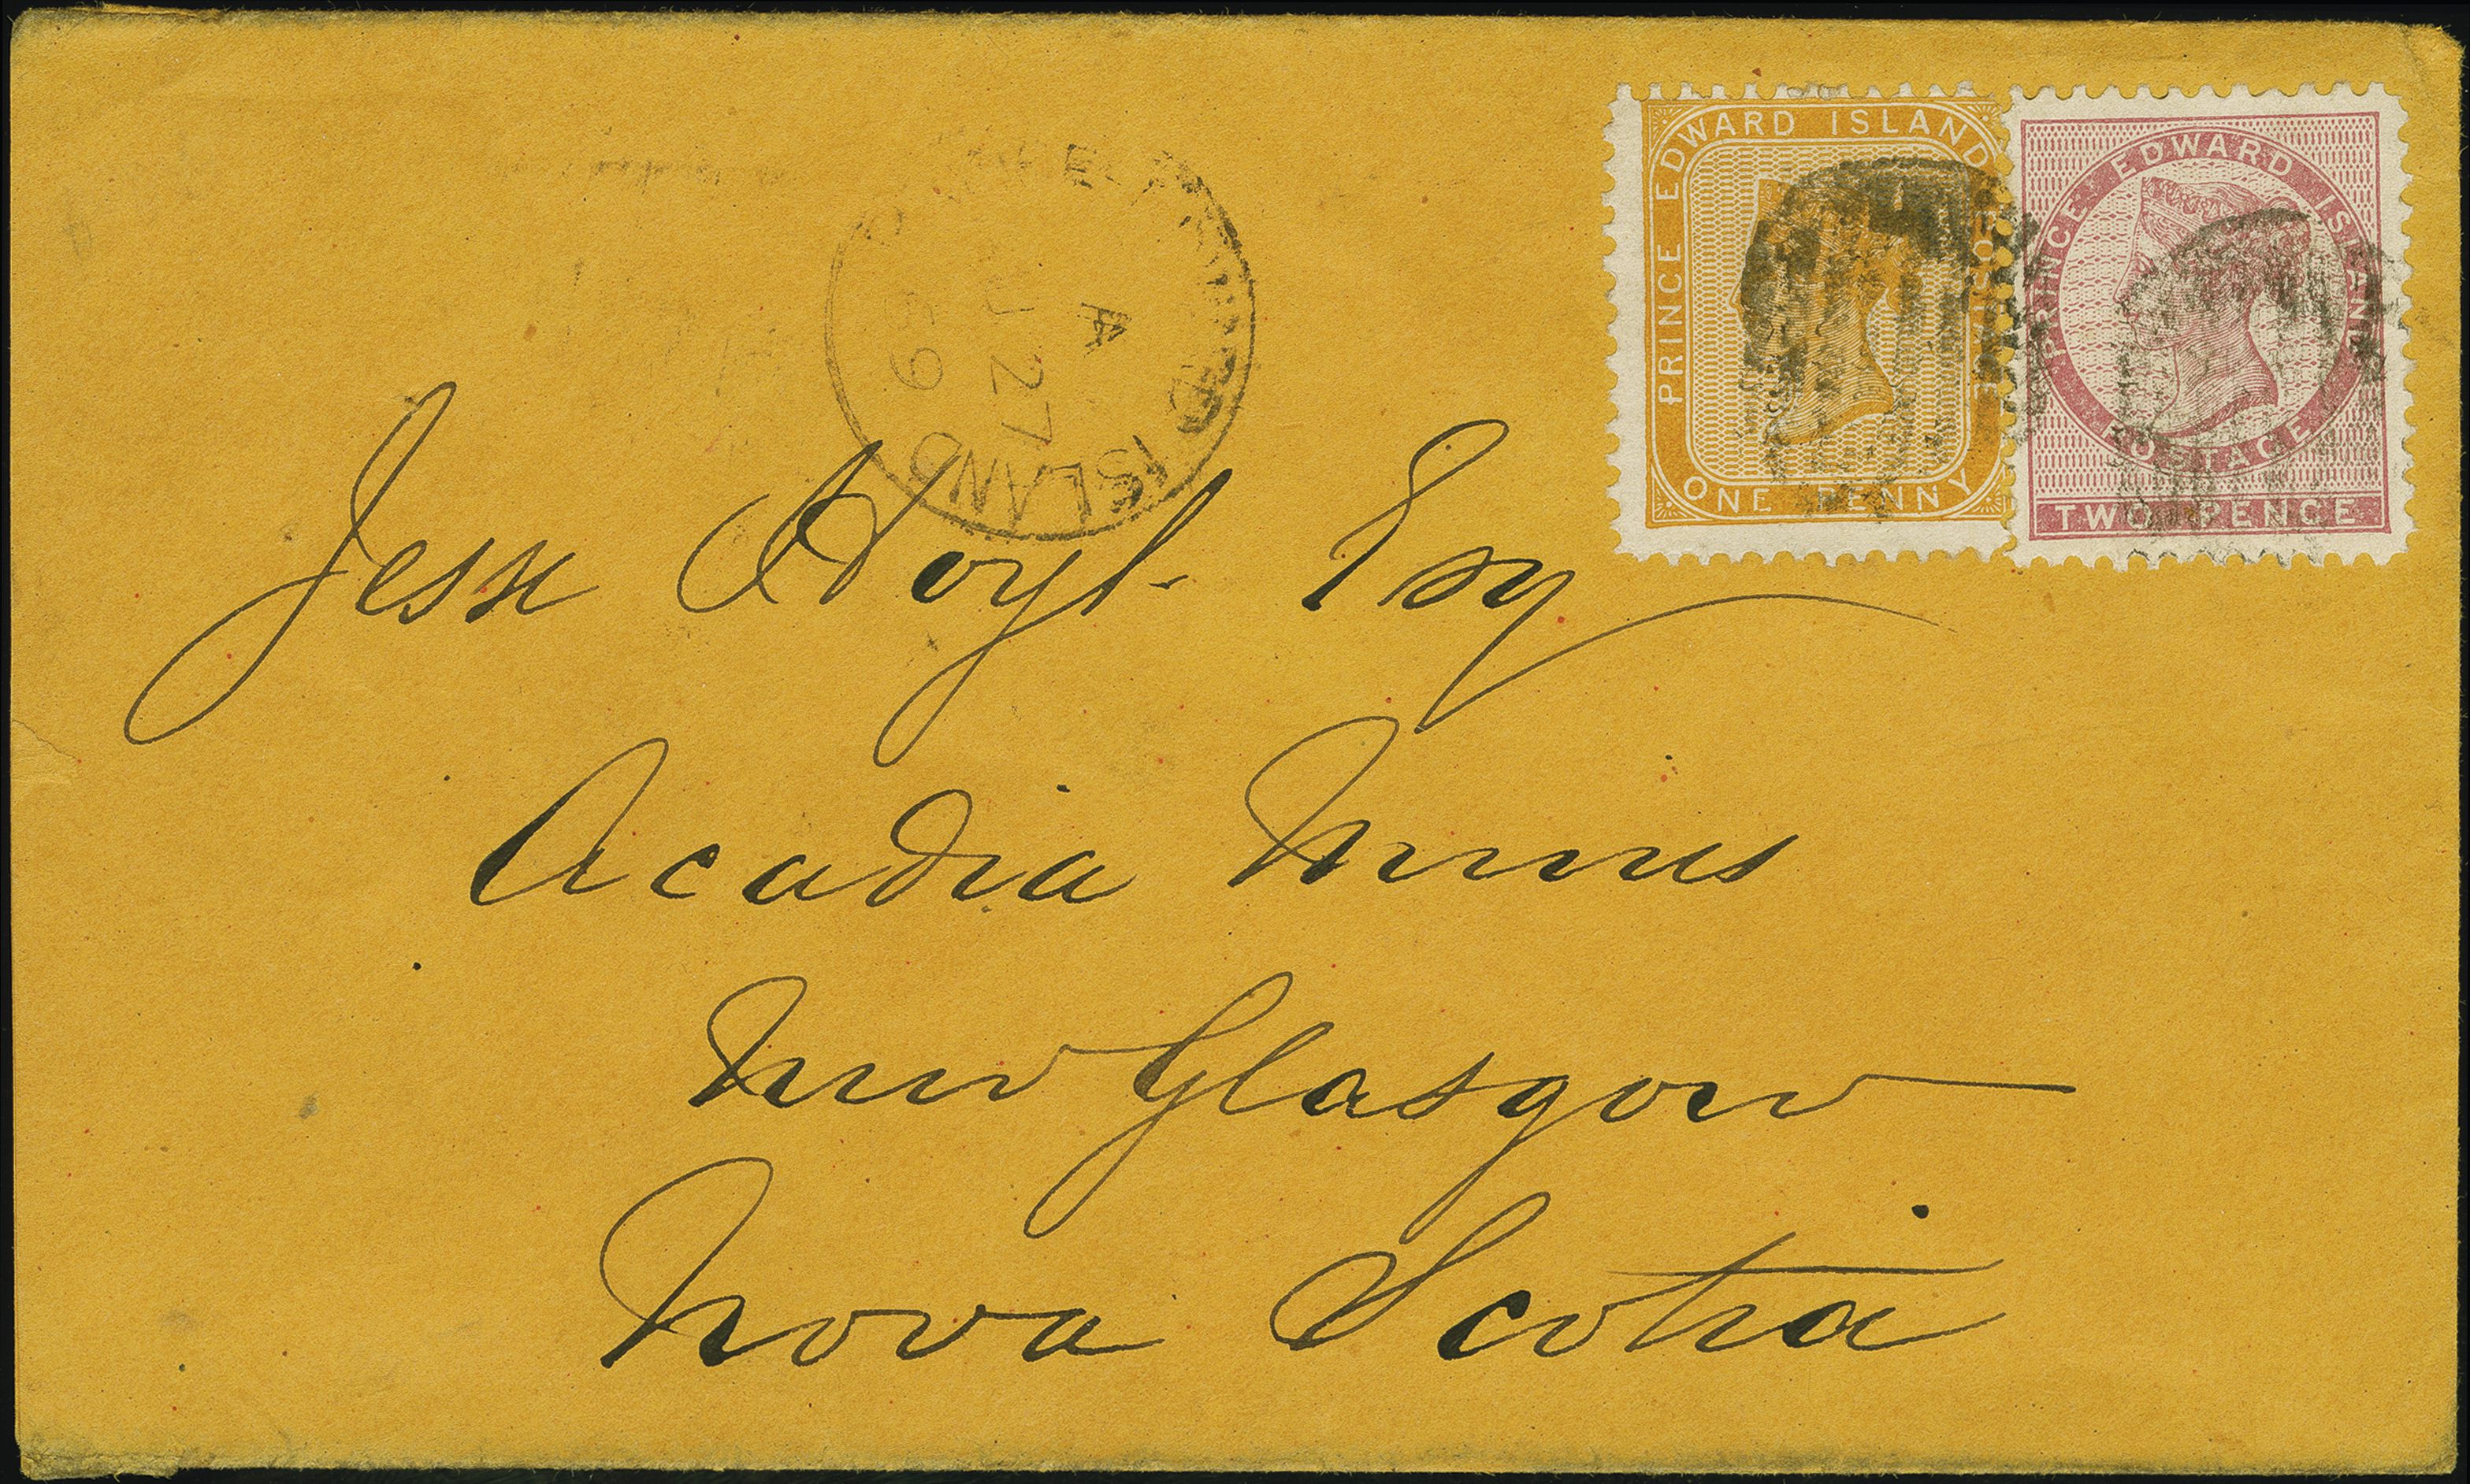 PRINCE EDWARD ISLAND
POSTAGE
ONE PENNY
PRINCE EDWARD ISLAND
POSTAGE
TWO PENCE
EDWARD ISLAND
A
27
69
Jesse Hoyt Esq
Acadia Mines
New Glasgow
Nova Scotia